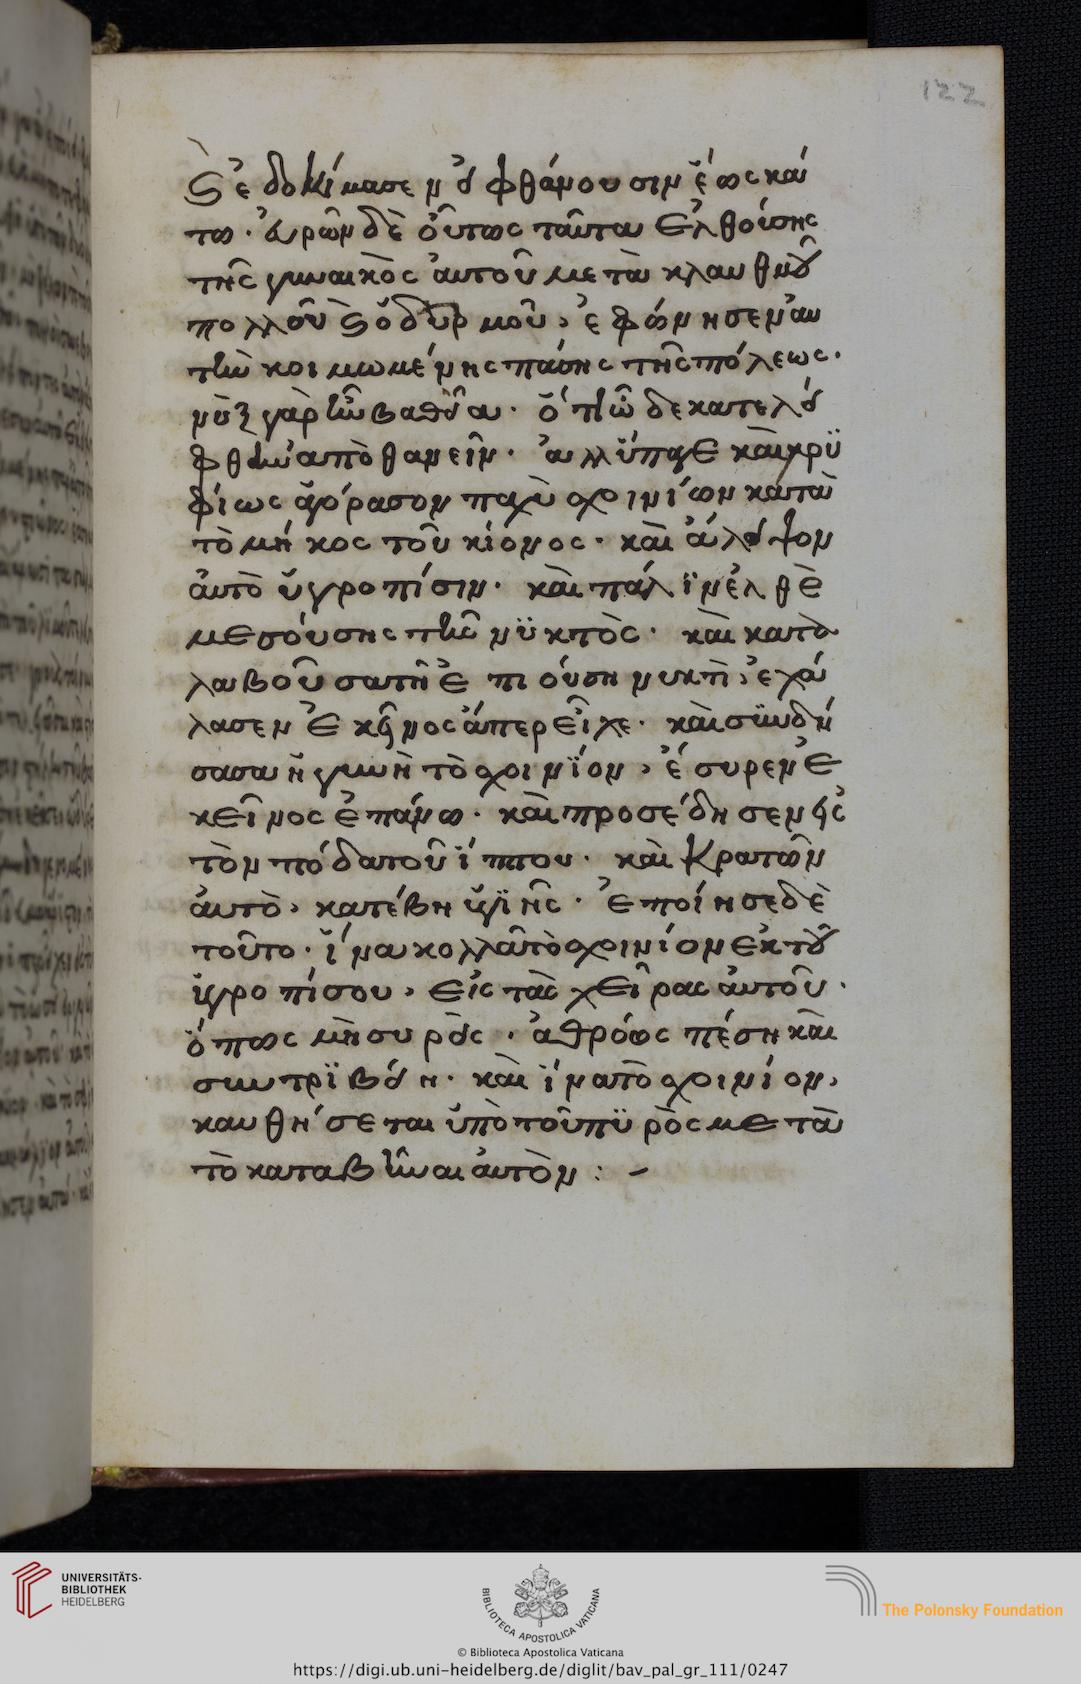 122
καὶ ἐδοκίμασεν εἰ φθάνουσιν ἕως κά
τω· εὑρὼν δὲ οὕτως ταῦτα ἐλθούσης
τῆς γυναικὸς αὐτοῦ μετὰ κλαυθμοῦ
πολλοῦ καὶ ὀδυρμοῦ, ἐφώνησεν αὐ
τὴν κοιμωμένης πάσης τῆς πόλεως·
νὺξ γὰρ ἦν βαθεῖα· ὅτι ὧδε κατελεί
φθην ἀποθανεῖν· ἀλλ ὕπαγε καὶ κρυ
φίως ἀγόρασον παχὺ σχοινίον κατὰ
τὸ μῆκος τοῦ κίονος· καὶ ἄλειψον
αὐτὸ ὑγροπίσιν· καὶ πάλιν ἐλθὲ
μεσούσης τῆς νυκτὸς· καὶ κατα
λαβοῦσα τῆ ἐπιούση νυκτὶ, ἐχά
λασεν ἐκεῖνος ἅπερ εἶχε· καὶ συνδή
σασα ἡ γυνὴ τὸ σχοινίον, ἔσυρεν ἐ
κεῖνος ἐπάνω· καὶ προσέδησεν εἰς
τὸν πόδα τοῦ ἵππου· καὶ κρατῶν
αὐτὸ, κατέβη ὑγιής· ἐποίησε δὲ
τοῦτο· ἵνα κολλᾶ τὸ σχοινίον ἐκ τοῦ
ὑγροπίσου, εἰς τὰς χεῖρας αὐτοῦ·
ὅπως μὴ συρεὶς· ἀθρόως πέση καὶ
συντριβείη· καὶ ἵνα τὸ σχοινίον,
καυθήσεται ὑπὸ τοῦ πυρὸς μετὰ
τὸ καταβῆναι αὐτὸν : –
UNIVERSITÄTS-
BIBLIOTHEK
HEIDELBERG
BIBLIOTECA APOSTOLICA VATICANA
The Polonsky Foundation
© Biblioteca Apostolica Vaticana
https://digi.ub.uni-heidelberg.de/diglit/bav_pal_gr_111/0247